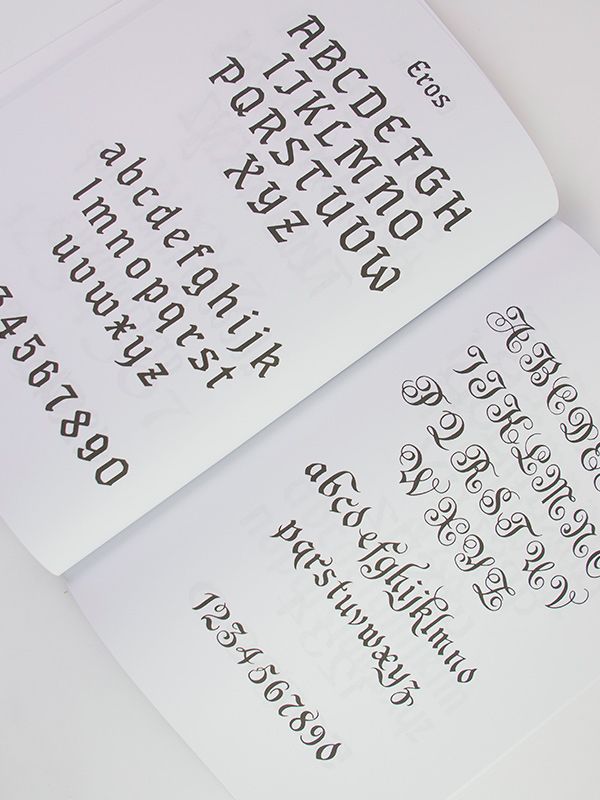 Eros
ABCDEFGH
IJKLMNO
PQRSTUVW
XYZ
abcdefghijk
lmnopqrst
uvwxyz
34567890
ABCDE
IJKLMNO
PQRSTUV
WXYZ
abcdefghijklmno
pqrstuvwxyz
1234567890